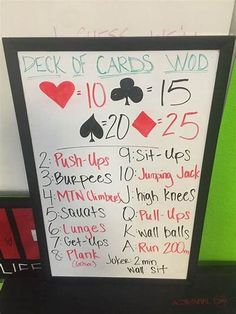 DECK OF CARDS WOD
♥=10 ♣=15
♠=20 ♦=25
2: Push-Ups
3: Burpees
4: MTN Climbers
5: Squats
6: Lunges
7: Get-Ups
8: Plank
9: Sit-Ups
10: Jumping Jack
J: high knees
Q: Pull-Ups
K: wall balls
A: Run 200m
Joker 2min
wall sit
LIFE